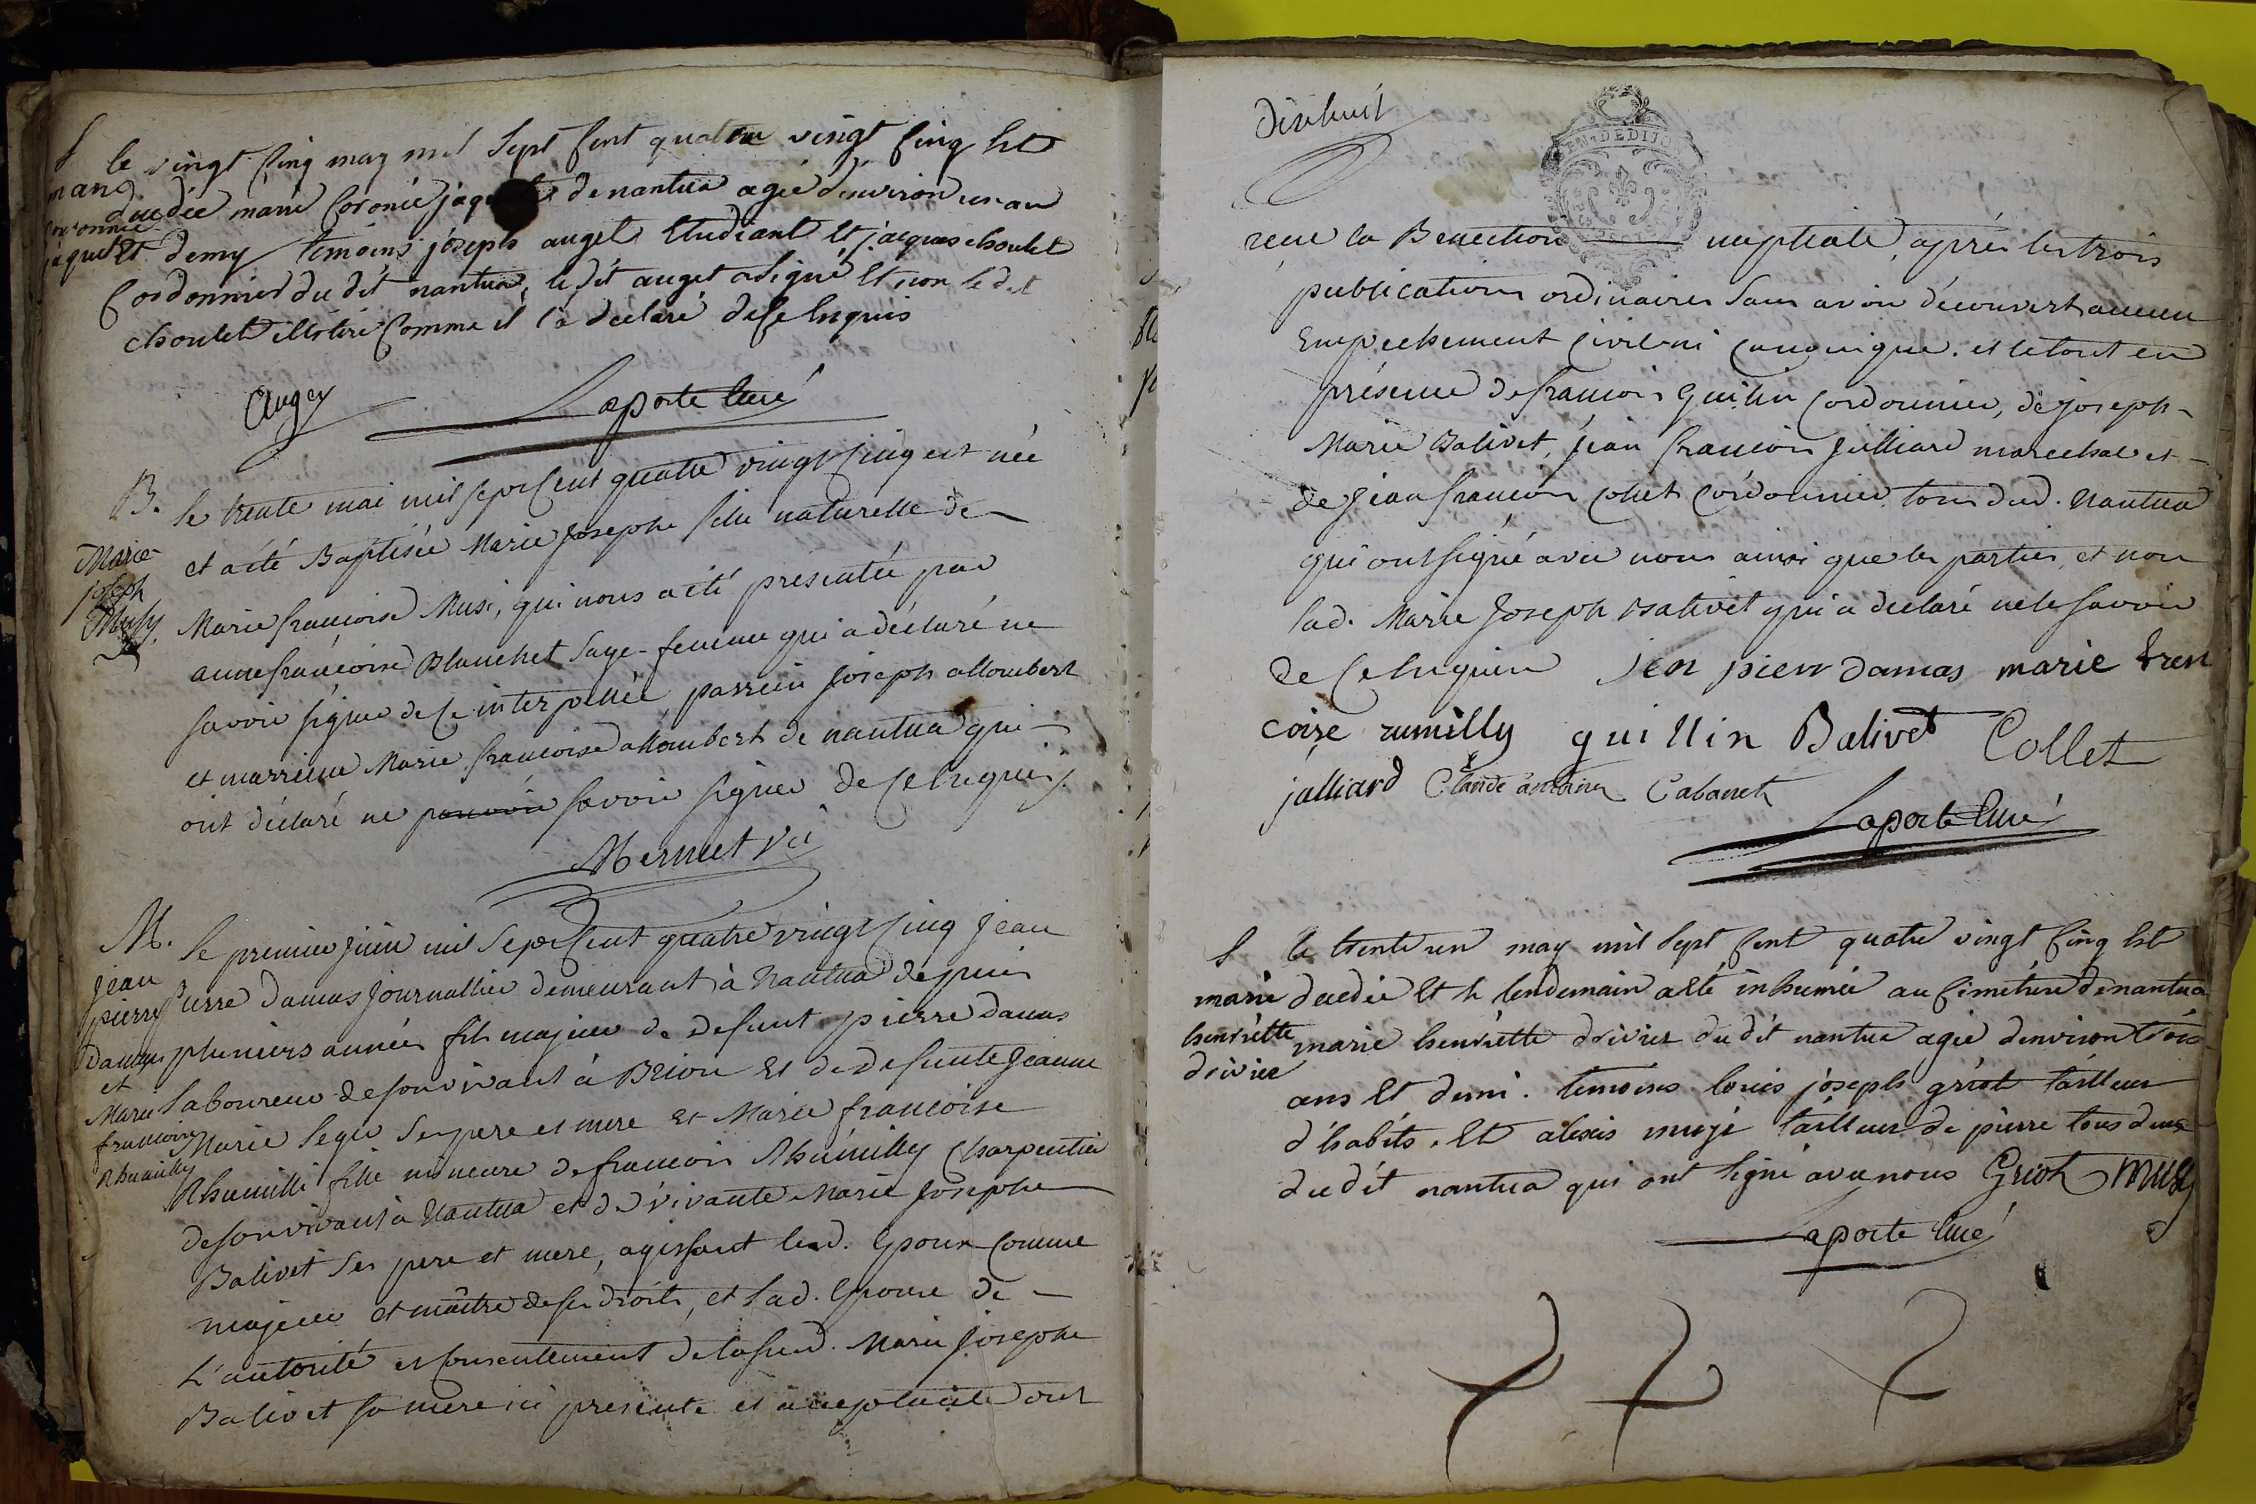 S le vingt cinq may mil sept cent quatre vingt cinq est
marie
coronnée
jaquet
décédée marie coronée jaquet de nantua agée d'environ un an
et demy témoins joseph auget etudiant et jacques choulet
cordonnier du dit nantua, le dit auget a signé et non le dit
choulet illitiré comme il l'a declaré de ce enquis
Auger
Laporte curé
B. le trente mai mil sept cent quatre vingt cinq est née
Marie
joseph
Musy
et a été Baptisée Marie Josephe fille naturelle de
Marie françoise Musi, qui nous a été présentée par
anne françoise Blanchet sage-femme qui a déclaré ne
savoir signer de ce interpellée, parrein Joseph allombert
et marreine Marie françoise allombert de nantua qui
ont déclaré ne pouvoir savoir signer de ce enquis
Mernet vic
M. le premier juin mil sept cent quatre vingt cinq jean
jean
pierre
Damas
et
Marie
francoise
Rhumilly
Pierre Damas journallier demeurant à Nantua depuis
plusieurs années fils majeur de defunt pierre damas
laboureur de son vivant à Brion et de defunte Jeanne
Marie ses pere et mere et Marie francoise
Rhumilli fille mineure de francois Rhumilly charpentier
de son vivant à Nantua et de vivante Marie Josephe
Balivet ses pere et mere, agissant led. Epoux comme
majeur et maître de ses droits, et lad. Epouse de
L'autorité et consentement de la sud. Marie Josephe
Balivet sa mere ici presente et acceptante ont
dixhuit
GEN. DE DIJON
reçu la Benediction nuptiale, après les trois
publications ordinaires sans avoir découvert aucun
Empechement civil ni canonique. et le tout en
présence de francois Guilin cordonnier, de joseph
Marie Balivet, jean francois julliard marechal et
de jean francois colet cordonnier tous dud. Nantua
qui ont signé avec nous ainsi que les parties, et non
lad. Marie Joseph Balivet qui a declaré ne le savoir
de ce enquise jen pierr damas marie fren
coise rumilly quillin Balivet Collet
julliard Claude antoine Cabanet
Laporte curé
S le trente un may mil sept cent quatre vingt cinq est
marie
henriette
drivier
decedée et le lendemain a eté inhumée au cimetière de nantua
marie henriette drivier du dit nantua agée d'environ trois
ans et demi. temoins louis joseph griot tailleur
d'habits. et alexis musi tailleur de pierre tous deux
dudit nantua qui ont signé avec nous Griot musy
Laporte curé